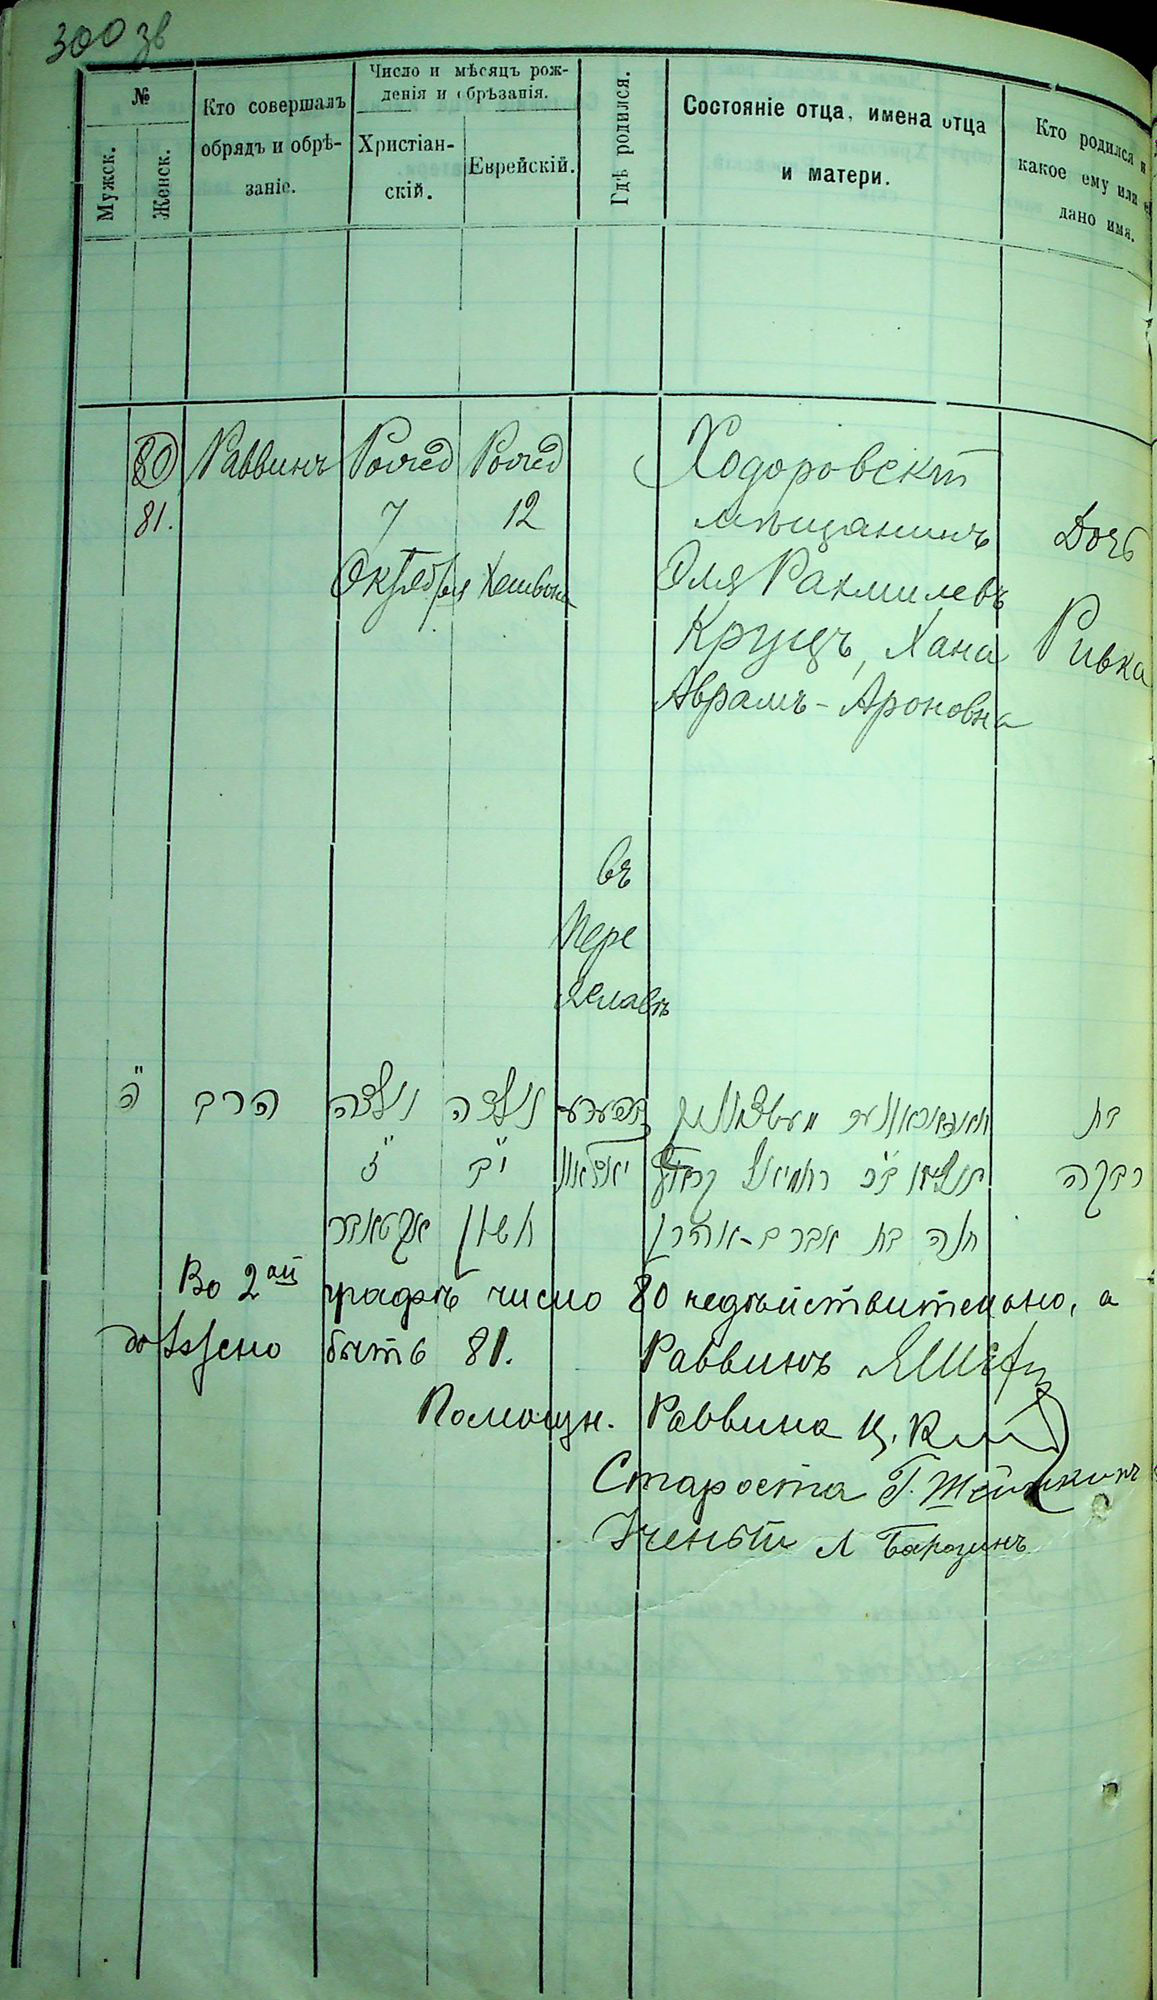 300 зв
№
Мужск.
Женск.
Кто совершалъ
обрядъ и обрѣ-
заніе.
Число и мѣсяцъ рож-
денія и обрѣзанія.
Христіан-
скій.
Еврейскій.
Гдѣ родился.
Состояніе отца, имена отца
и матери.
Кто родился и
какое ему или
дано имя.
80
81.
Раввинъ
7
Октября
12
Хешвона
въ
Пере
яславѣ
Ходоровскій
мѣщанинъ
Эля Рахмилевъ
Крущъ, Хана
Аврамъ-Ароновна
Дочь
Ривка
הרב
נולדה
ז״
אקטאבר
נולדה
י״ב
חשון
חנה בת אברם-אהרן
בת
רבקה
Во 2ой графѣ число 80 недѣйствительно, а
должно быть 81.
Раввинъ
Помощн. Раввина Ц.
Староста Г.
Ученый Л